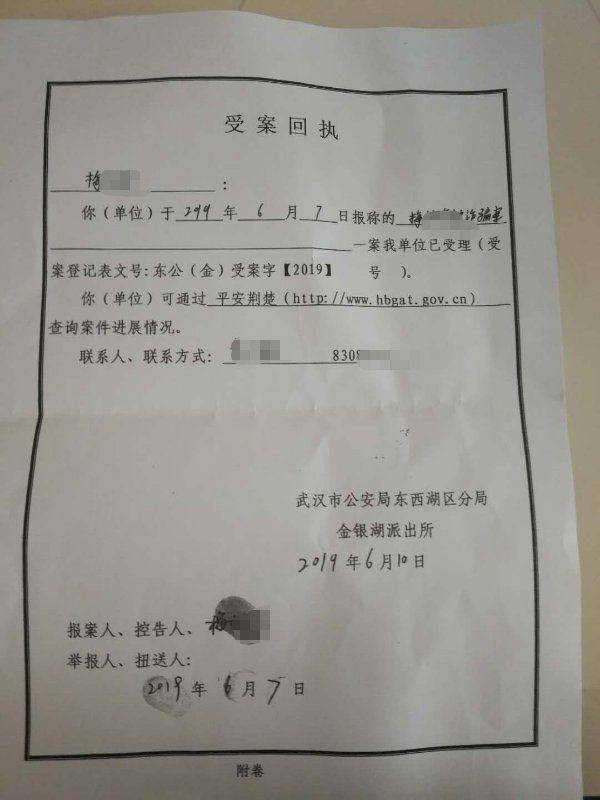 受案回执
梅 :
你（单位）于 2019 年 6 月 7 日报称的 梅 被诈骗案
一案我单位已受理（受
案登记表文号:东公（金）受案字【2019】 号 ）。
你（单位）可通过 平安荆楚（http://www.hbgat.gov.cn）
查询案件进展情况。
联系人、联系方式: 8308
武汉市公安局东西湖区分局
金银湖派出所
2019 年 6 月 10 日
报案人、控告人、 梅
举报人、扭送人:
2019 年 6 月 7 日
附卷